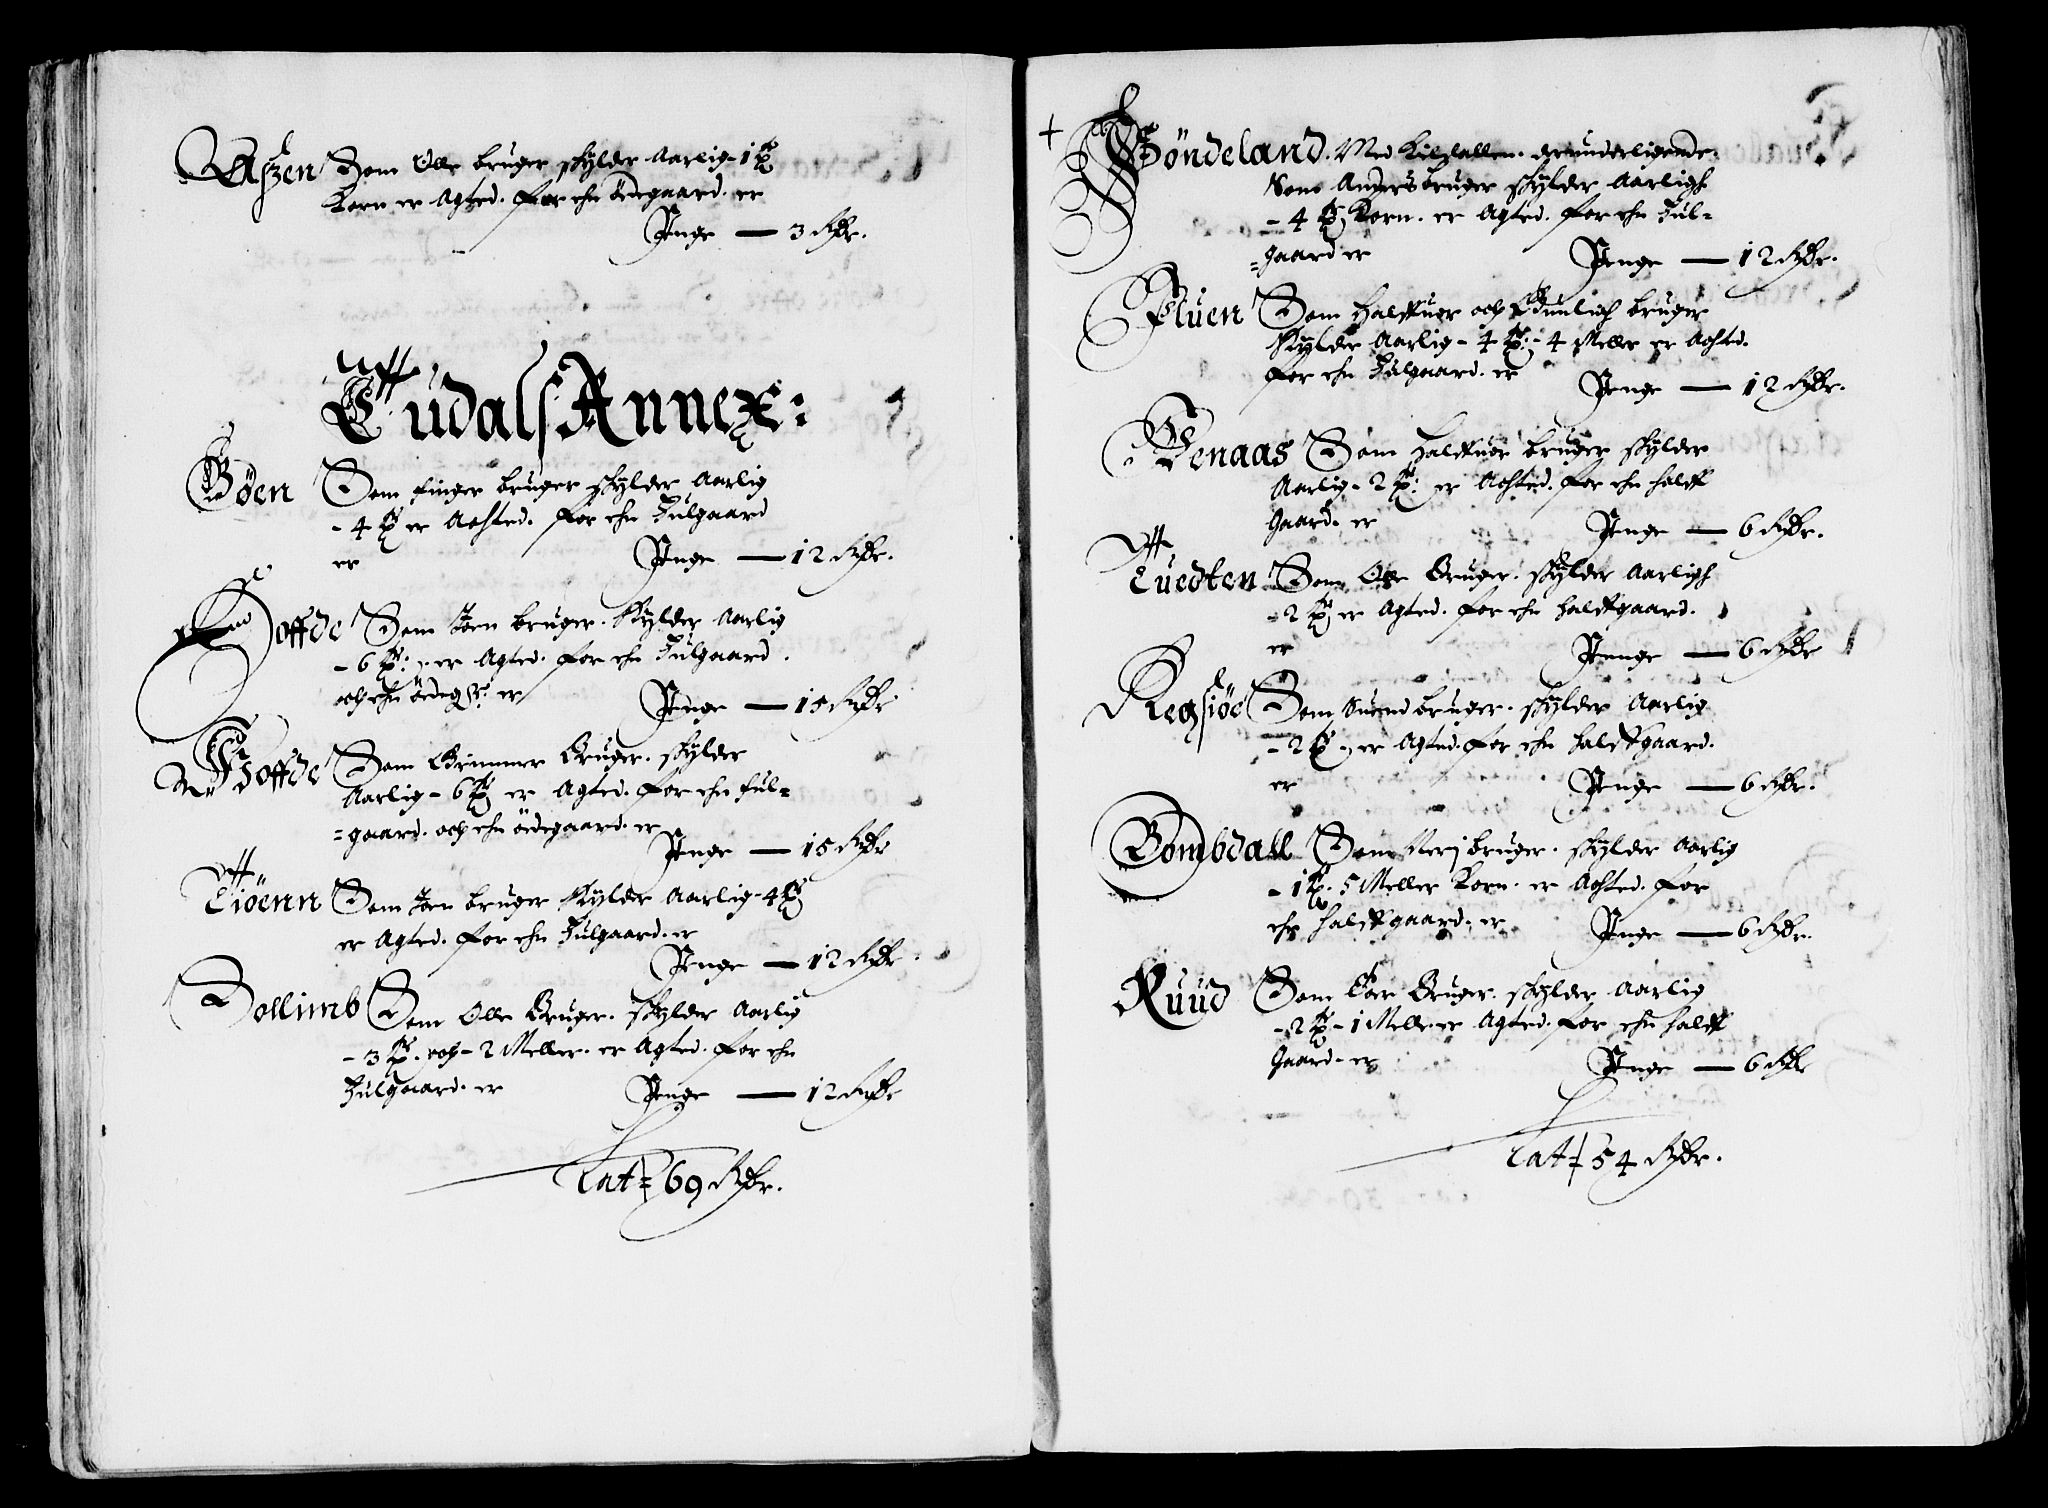 Aszen Som Olle bruger skylder Aarlig - 1 ℔
Korn er Agted. for ehn ödegaard. er
Penge — 3 Rdr.
Tudals Annex:
Böen Som finger bruger skylder Aarlig
- 4 ℔ er Achted. for ehn Fulgaard
er Penge — 12 Rdr.
Hoffde Som Jörn bruger. Skylder Aarlig
- 6 ℔: er Agted. for ehn Fulgaard.
och ehn ödeg: er Penge — 15 Rdr
Hoffde Som Brinmer Bruger. skylder
Aarlig - 6 ℔ er Agted. for ehn ful=
=gaard. och ehn ödegaard. er
Penge — 15 Rdr
Tiöenn Som Jörn bruger Skylder Aarlig - 4 ℔
er Agted. for ehn Fulgaard. er
Penge — 12 Rdr.
Bollimb Som Olle Bruger. skylder Aarlig
- 3 ℔. och - 2 Meller. er Agted. for ehn
Fulgaard. er Penge — 12 Rdr
Lat = 69 Rdr.
+ Böndeland. Med Kilsdallen. derunderligende
Som Anders bruger skylder Aarligh
- 4 ℔ Korn. er Agted. for ehn Ful=
=gaard er Penge — 12 Rdr.
Fluen Som Haldkuer och Gunlich bruger
Skylder Aarlig - 4 ℔: - 4 Meller er Achted.
for ehn Fulgaard. er Penge — 12 Rdr.
Tenaas Som Haldkuer bruger skylder
Aarlig - 2 ℔: er Achted. for ehn halff
gaard. er Penge — 6 Rdr.
Tuedten Som Olle Bruger. skylder Aarligh
- 2 ℔ er Agted. for ehn halffgaard.
er Penge — 6 Rdr
Regsiöe Som Suend bruger. skylder Aarlig
- 2 ℔ er Agted. for ehn halffgaard.
er Penge — 6 Rdr.
Bombdall Som Nerj bruger. skylder Aarlig
- 1 ℔. 5 Meller Korn. er Achted. for
ehn halffgaard. er Penge — 6 Rdr.
Ruud Som Tor Bruger. skylder Aarlig
- 2 ℔ - 1 Mell. er Agted. for ehn halff
Gaard. er Penge — 6 Rdr
Lat = 54 Rdr.